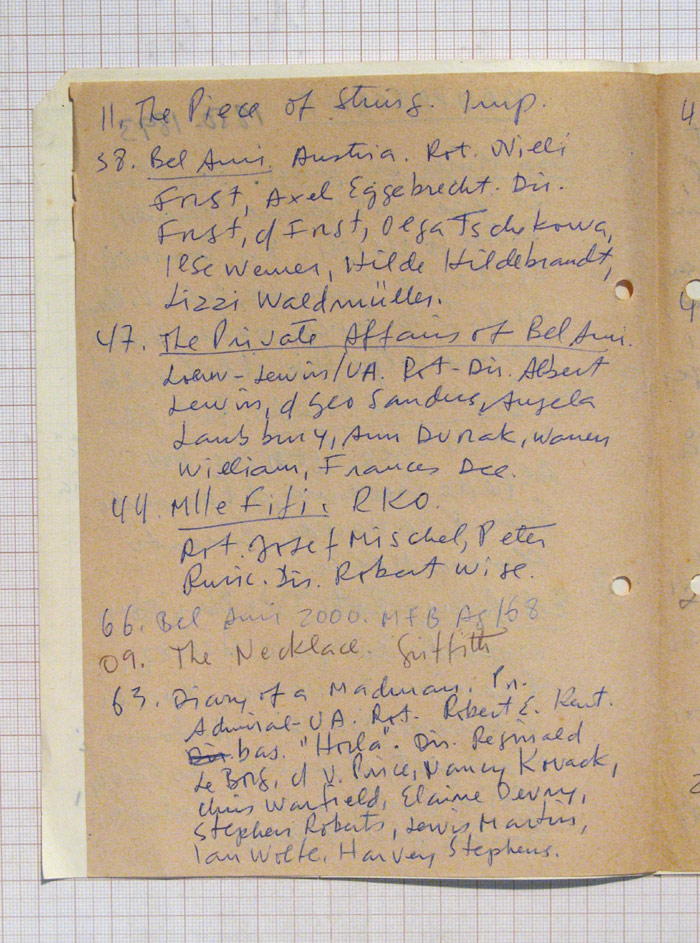 11. The Piece of String. Imp.
38. Bel Ami. Austria. Rot. Willi
Forst, Axel Eggebrecht. Dir.
Forst, d Forst, Olga Tschekowa,
Ilse Werner, Hilde Hildebrandt,
Lizzi Waldmüller.
47. The Private Affairs of Bel Ami.
Loew-Lewin/UA. Rot-Dir. Albert
Lewin, d Geo Sanders, Angela
Lansbury, Ann Dvorak, Warren
William, Frances Dee.
44. Mlle Fifi. RKO.
Rot. Josef Mischel, Peter
Ruric. Dir. Robert Wise.
66. Bel Ami 2000. MFB Ag/68
09. The Necklace. Griffith
63. Diary of a Madman. Pr.
Admiral-UA. Rot. Robert E. Kent.
bas. "Horla". Dir. Reginald
Le Borg, d V. Price, Nancy Kovack,
Chris Warfield, Elaine Devry,
Stephen Roberts, Lewis Martin,
Ian Wolfe, Harvey Stephens.
4